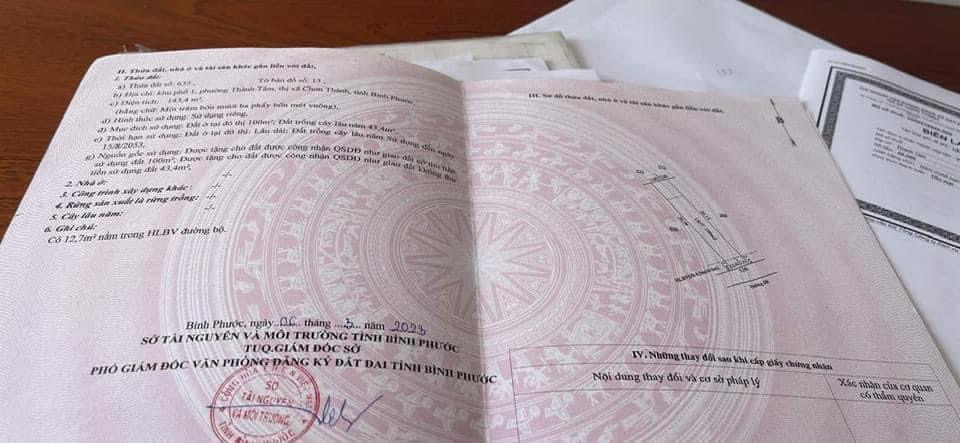 II. Thửa đất, nhà ở và tài sản khác gắn liền với đất.
1. Thửa đất:
a) Thửa đất số: 635, Tờ bản đồ số: 13,
b) Địa chỉ: khu phố 1, phường Thành Tâm, thị xã Chơn Thành, tỉnh Bình Phước.
c) Diện tích: 143,4 m²,
(bằng chữ: Một trăm bốn mươi ba phẩy bốn mét vuông),
d) Hình thức sử dụng: Sử dụng riêng,
đ) Mục đích sử dụng: Đất ở tại đô thị 100m²; Đất trồng cây lâu năm 43,4m²,
e) Thời hạn sử dụng: Đất ở tại đô thị: Lâu dài; Đất trồng cây lâu năm Sử dụng đến ngày
15/8/2053,
g) Nguồn gốc sử dụng: Được tặng cho đất được công nhận QSDĐ như giao đất có thu tiền
sử dụng đất 100m²; Được tặng cho đất được công nhận QSDĐ như giao đất không thu
tiền sử dụng đất 43,4m².
2. Nhà ở: -/-
3. Công trình xây dựng khác: -/-
4. Rừng sản xuất là rừng trồng: -/-
5. Cây lâu năm: -/-
6. Ghi chú:
Có 12,7m² nằm trong HLBV đường bộ.
Bình Phước, ngày 06 tháng 3 năm 2023
SỞ TÀI NGUYÊN VÀ MÔI TRƯỜNG TỈNH BÌNH PHƯỚC
TUQ.GIÁM ĐỐC SỞ
PHÓ GIÁM ĐỐC VĂN PHÒNG ĐĂNG KÝ ĐẤT ĐAI TỈNH BÌNH PHƯỚC
SỞ
TÀI NGUYÊN
VÀ MÔI TRƯỜNG
III. Sơ đồ thửa đất, nhà ở và tài sản khác gắn liền với đất.
IV. Những thay đổi sau khi cấp giấy chứng nhận
Nội dung thay đổi và cơ sở pháp lý
Xác nhận của cơ quan
có thẩm quyền